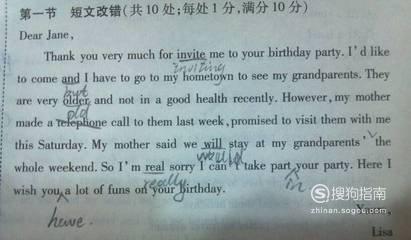 第一节 短文改错(共10处;每处1分,满分10分)
Dear Jane,
Thank you very much for invite me to your birthday party. I'd like
inviting
to come and I have to go to my hometown to see my grandparents. They
but
are very older and not in a good health recently. However, my mother
old
made a telephone call to them last week, promised to visit them with me
this Saturday. My mother said we will stay at my grandparents' the
would
whole weekend. So I'm real sorry I can't take part your party. Here I
really in
wish you a lot of funs on your birthday.
have
搜狗指南
zhinan.sogou.com
Lisa